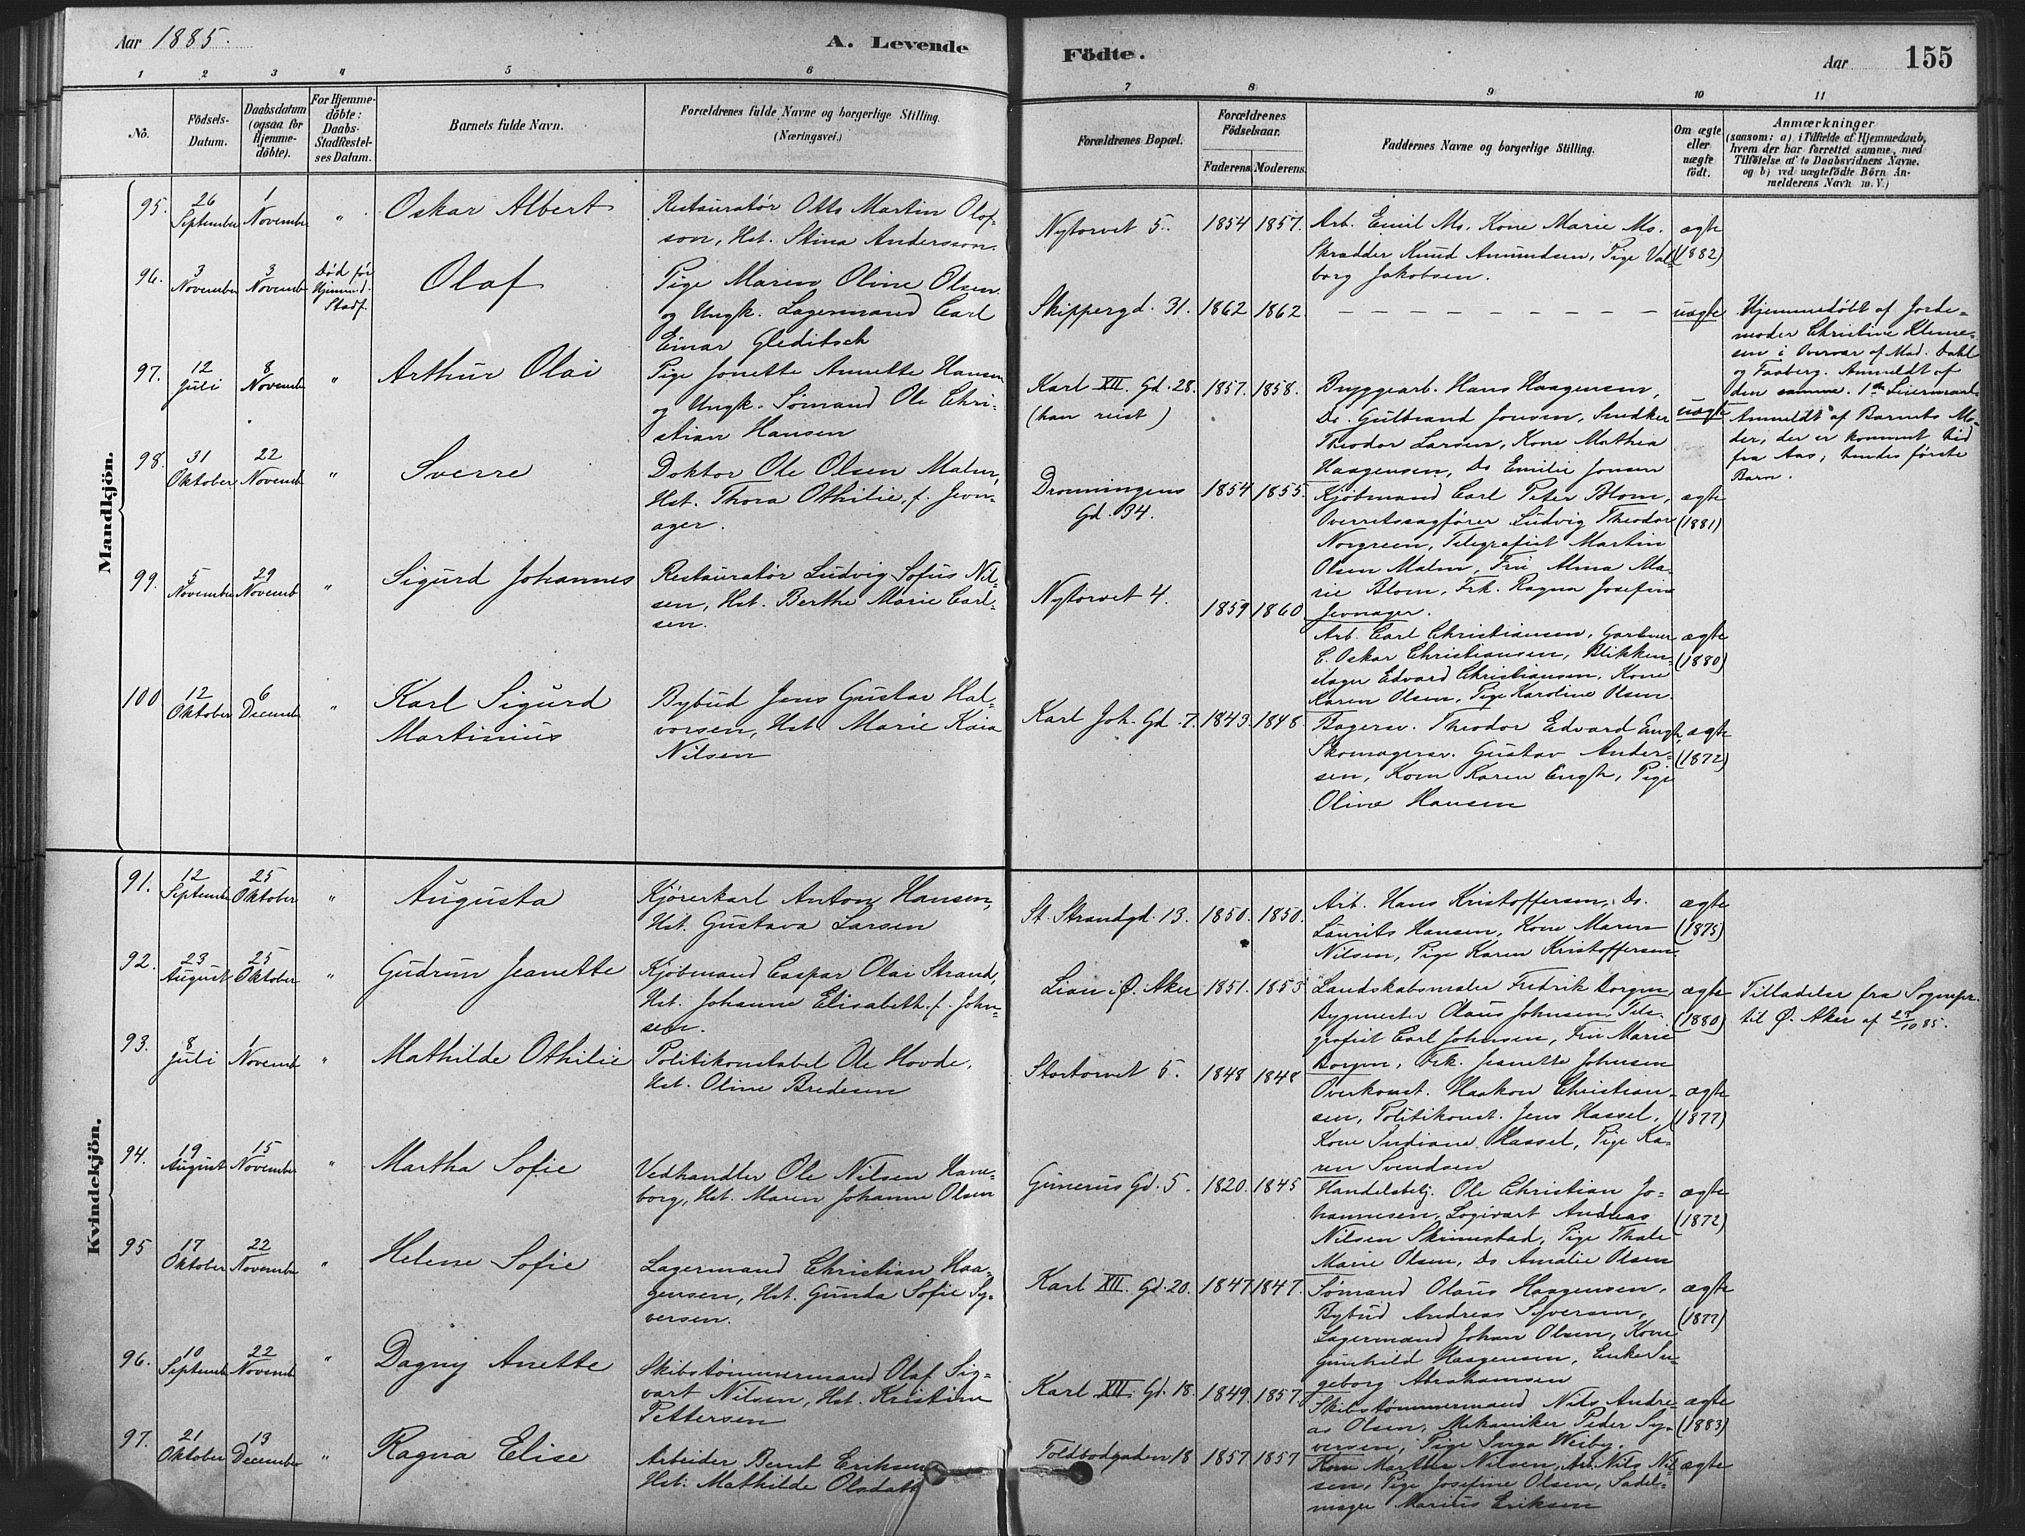 Aar 1885.
A. Levende
Födte.
Aar
155
1 2 3 4 5 6
7 8 9 10 11
No.
Födsels-Datum.
Daabsdatum (ogsaa for Hjemme-döbte).
For Hjemme-döbte: Daabs-Stadfæstel-ses Datum.
Barnets fulde Navn.
Forældrenes fulde Navne og borgerlige Stilling.
(Næringsvei.)
Forældrenes Bopæl.
Forældrenes Födselsaar.
Faderens. Moderens.
Faddernes Navne og borgerlige Stilling.
Om ægte eller uægte födt.
Anmærkninger
(saasom: a) i Tilfælde af Hjemmedaab,
hvem der har forrettet samme, med
Tilföielse af to Daabsvidners Navne.
og b) ved uægtefödte Börn An-
melderens Navn m. V.)
Mandkjön.
95. 26 September 1 November " Oskar Albert
Restauratør Otto Martin Olof-
son, Hst. Stina Andersson.
Nytorvet 5. 1854 1857.
Arb. Emil Ms. Kone Marie Ms.
Skrædder Knud Amundsen, Pige Val-
borg Jakobsen.
ægte (1882)
96. 3 November 3 November Død før Hjemmed. Stadf.
Olaf
Pige Maren Oline Olsen
og Ungk. Lagermand Carl
Einar Gleditsch
Skippergd. 31. 1862 1862.
uægte
Hjemmedøbt af Jorde-
moder Christine Kleme-
sen i Overvær af Mad. Dahl
og Faaberg. Anmeldt af
den samme. 1ste Leiermaal
97. 12 Juli 8 Novemb " Arthur Olai
Pige Jonette Annette Hansen
og Ungk. Sømand Ole Chri-
stian Hansen
Karl XII. Gd. 28.
(han reist)
1857. 1858.
Bryggearb. Hans Haagensen,
Ds. Gulbrand Jonsen, Snedker
Theodor Larsen, Kone Mathea
Haagensen, Ds Emilie Jonsen
uægte
Anmeldt af Barnets Mo-
der, der er kommet hid
fra Aas; hendes første
Barn.
98. 31 Oktober 22 Novemb " Sverre
Doktor Ole Olsen Malm,
Hst. Thora Othilie, f. Jevn-
ager.
Dronningens
Gd. 34.
1854 1855.
Kjøbmand Carl Peter Blom,
Overretssagfører Ludvig Theodor
Norgreen, Telegrafist Martin
Olsen Malm, Fru Alma Ma-
rie Blom, Frk. Ragna Josefine
Jevnager.
ægte (1881)
99. 5 November 29 Novemb " Sigurd Johannes
Restauratør Ludvig Sofus Nil-
sen, Hst. Berthe Marie Carl-
sen.
Nytorvet 4. 1859 1860
Arb. Carl Christiansen, Gartner
C. Oskar Christiansen, Blikken-
slager Edvard Christiansen, Kone
Karen Olsen, Pige Karoline Olsen.
ægte (1880)
100 12 Oktober 6 Decemb " Karl Sigurd
Martinius
Bybud Jens Gustav Hal-
vorsen, Hst. Marie Kaia
Nilsen
Karl Joh. Gd. 7. 1843. 1848.
Bagersv. Theodor Edvard Engh,
Skomagersv. Gustav Ander-
sen, Kone Karen Engh, Pige
Oline Hansen
ægte (1872)
Kvindekjön.
91. 12 Septemb 25 Oktober " Augusta
Kjørerkarl Anton Hansen,
Hst. Gustava Larsen
St. Strandgd. 13. 1850. 1850.
Arb. Hans Kristoffersen, Ds.
Laurits Hansen, Kone Maren
Nilsen, Pige Karen Kristoffersen
ægte (1875)
92. 23 August 25 Oktober " Gudrun Jeanette
Kjøbmand Caspar Olai Strand,
Hst. Johanne Elisabeth f. John-
sen.
Lian i Ø. Aker 1851. 1853
Landskabsmaler Fredrik Borgen,
Bygmester Olaus Johnsen, Tele-
grafist Carl Johnsen, Fru Marie
Borgen, Frk. Jeanette Johnsen
ægte (1880)
Tilladelse fra Sognepr.
til Ø. Aker af 23/10 85.
93. 8 Juli 1 Novemb " Mathilde Othilie
Politikonstabel Ole Hovde,
Hst. Oline Bredesen
Stortorvet 5. 1848 1848
Overkonst. Haakon Christian-
sen, Politikonst. Jens Hassel,
Kone Indiane Hassel, Pige Ka-
ren Svendsen
ægte (1877)
94. 19 August 15 November " Martha Sofie
Vedhandler Ole Nilsen Hane-
borg, Hst. Maren Johanne Olsen
Grünerus Gd. 5. 1820. 1845
Handelsbetj. Ole Christian Jo-
hannesen, Logivært Andreas
Nilsen Skinnstad, Pige Thale
Marie Olsen, Ds Amalie Olsen
ægte (1872)
95 17 Oktober 22 November " Helene Sofie
Lagermand Christian Haa-
gensen, Hst. Gunda Sofie Sy-
versen.
Karl XII. Gd. 20. 1847 1847.
Sømand Olaus Haagensen,
Bybud Andreas Syversen,
Lagermand Johan Olsen, Kone
Gunhild Haagensen, Enke In-
geborg Abrahamsen
ægte (1877)
96. 10 Septemb 22 Novemb " Dagny Anette
Skibstømmermand Olaf Sig-
vart Nilsen, Hst. Kristine
Pettersen
Karl XII. Gd. 18. 1849. 1857.
Skibstømmermand Nils Andre-
as Olsen, Mekaniker Peder Sy-
versen, Pige Inga Weiby.
ægte (1883)
97. 21 Oktober 13 December " Ragna Elise
Arbeider Bernt Eriksen
Hst. Mathilde Olsdatt
Toldbodgaden 18 1857 1857
Kone Marthe Nilsen, Arb. Nils Nil-
sen, Pige Josefine Olsen, Sadel-
mager Marius Eriksen
ægte